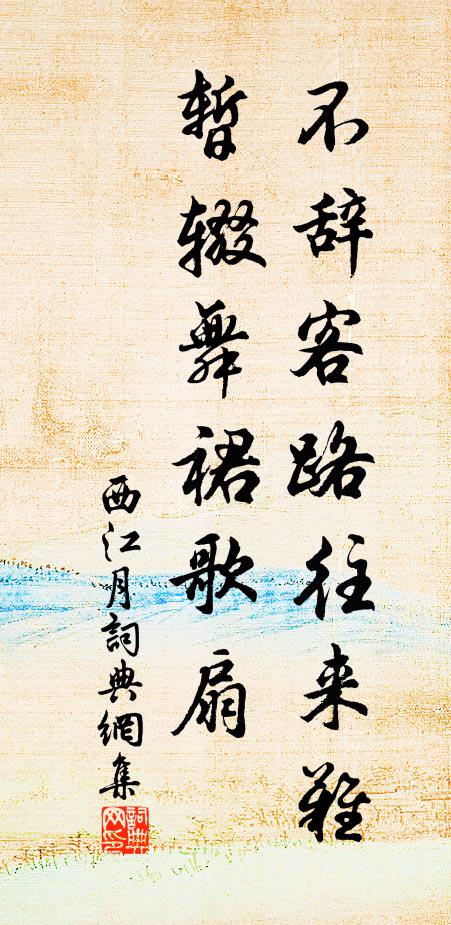 不辞客路往来难
暂辍舞裙歌扇
西江月詞典網集
詞典网